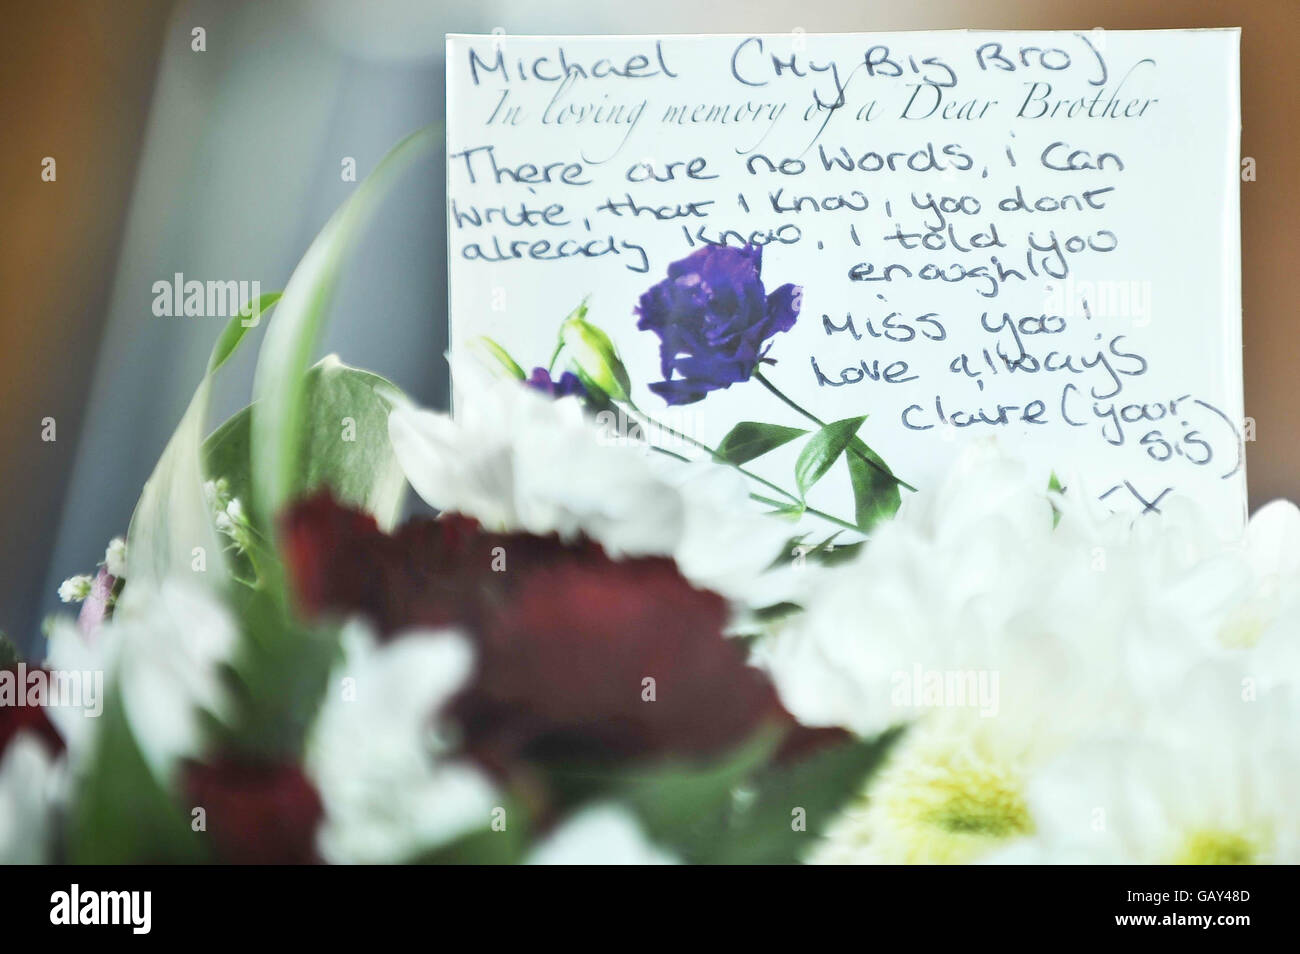 Michael (My Big Bro)
In loving memory of a Dear Brother
There are no words, i can
write, that i know, you dont
already know, i told you
enough!
Miss you!
Love always
Claire (your
sis)
X
alamy
a
alamy
Image ID: GAY48D
www.alamy.com